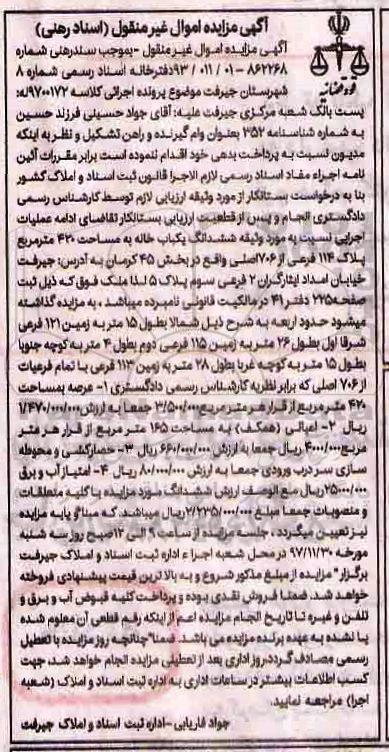 آگهی مزایده اموال غیر منقول (اسناد رهنی)
آگهی مزایده اموال غیر منقول -بموجب سندرهنی شماره
۸۶۲۲۶۸ -۰۱ /۰۱۱ /۹۳دفترخانه اسناد رسمی شماره ۸
شهرستان جیرفت موضوع پرونده اجرائی کلاسه ۹۷۰۰۱۷۲له:
پست بانک شعبه مرکزی جیرفت علیه: آقای جواد حسینی فرزند حسین
به شماره شناسنامه ۳۵۲ بعنوان وام گیرنده و راهن تشکیل و نظر به اینکه
مدیون نسبت به پرداخت بدهی خود اقدام ننموده است برابر مقررات آئین
نامه اجراء مفاد اسناد رسمی لازم الاجرا قانون ثبت اسناد و املاک کشور
بنا به درخواست بستانکار از مورد وثیقه ارزیابی لازم توسط کارشناس رسمی
دادگستری انجام و پس از قطعیت ارزیابی بستانکار تقاضای ادامه عملیات
اجرایی نسبت به مورد وثیقه ششدانگ یکباب خانه به مساحت ۴۲۰ مترمربع
پلاک ۱۱۴ فرعی از ۷۰۶اصلی واقع در بخش ۴۵ کرمان به آدرس: جیرفت
خیابان امداد ایثارگران ۲ فرعی سوم پلاک ۵ لذا ملک فوق که ذیل ثبت
صفحه۲۲۵ دفتر ۴۱ در مالکیت قانونی نامبرده میباشد ، به مزایده گذاشته
میشود حدود اربعه به شرح ذیل شمالا بطول ۱۵ متر به زمین ۱۲۱ فرعی
شرقا اول بطول ۲۶ متر به زمین ۱۱۵ فرعی دوم بطول ۴ متر به کوچه جنوبا
بطول ۱۵ متر به کوچه غربا بطول ۲۸ متر به زمین ۱۱۳ فرعی با تمام فرعیات
از ۷۰۶ اصلی که برابر نظریه کارشناس رسمی دادگستری ۱- عرصه بمساحت
۴۲۰ متر مربع از قرار هر متر مربع۳/۵۰۰/۰۰۰ جمعا به ارزش۱/۴۷۰/۰۰۰/۰۰۰
ریال ۲- اعیانی (همکف) به مساحت ۱۶۵ متر مربع از قرار هر متر
مربع۴/۰۰۰/۰۰۰ ریال جمعا به ارزش ۶۶۰/۰۰۰/۰۰۰ ریال ۳- حصارکشی و محوطه
سازی سر درب ورودی جمعا به ارزش ۸۰/۰۰۰/۰۰۰ ریال ۴- امتیاز آب و برق
۲۵/۰۰۰/۰۰۰ریال مع الوصف ارزش ششدانگ مورد مزایده با کلیه متعلقات
و منصوبات جمعا مبلغ ۲/۲۳۵/۰۰۰/۰۰۰ریال میباشد. که مبنا و پایه مزایده
نیز تعیین میگردد ، جلسه مزایده از ساعت ۹ الی ۱۲صبح روز سه شنبه
مورخه ۹۷/۱۱/۳۰ در محل شعبه اجراء اداره ثبت اسناد و املاک جیرفت
برگزار" مزایده از مبلغ مذکور شروع و به بالا ترین قیمت پیشنهادی فروخته
خواهد شد. ضمنا فروش نقدی بوده و پرداخت کلیه قبوض آب و برق و
تلفن و غیره تا تاریخ انجام مزایده اعم از اینکه رقم قطعی آن معلوم شده
یا نشده به عهده برنده مزایده می باشد. ضمنا"چنانچه روز مزایده با تعطیل
رسمی مصادف گردد،روز اداری بعد از تعطیلی مزایده انجام خواهد شد، جهت
کسب اطلاعات بیشتر در ساعات اداری به اداره ثبت اسناد و املاک (شعبه
اجرا) مراجعه نمایید.
جواد فاریابی -اداره ثبت اسناد و املاک جیرفت
قوه قضائیه